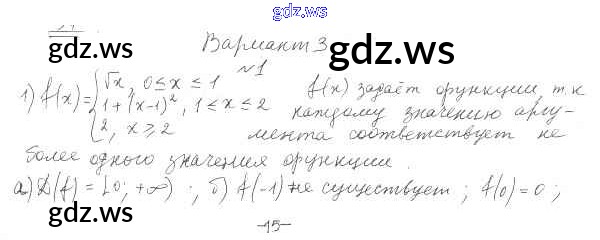 gdz.ws
gdz.ws
Вариант 3
gdz.ws
№1
1) f(x) = { √x, 0 ≤ x ≤ 1
1 + (x-1)², 1 ≤ x ≤ 2
2, x ≥ 2
f(x) задаёт функцию, т.к
каждому значению аргу-
мента соответствует не
более одного значения функции.
а) D(f) = [0; +∞) ; б) f(-1) не существует ; f(0) = 0 ;
gdz.ws
gdz.ws
-15-